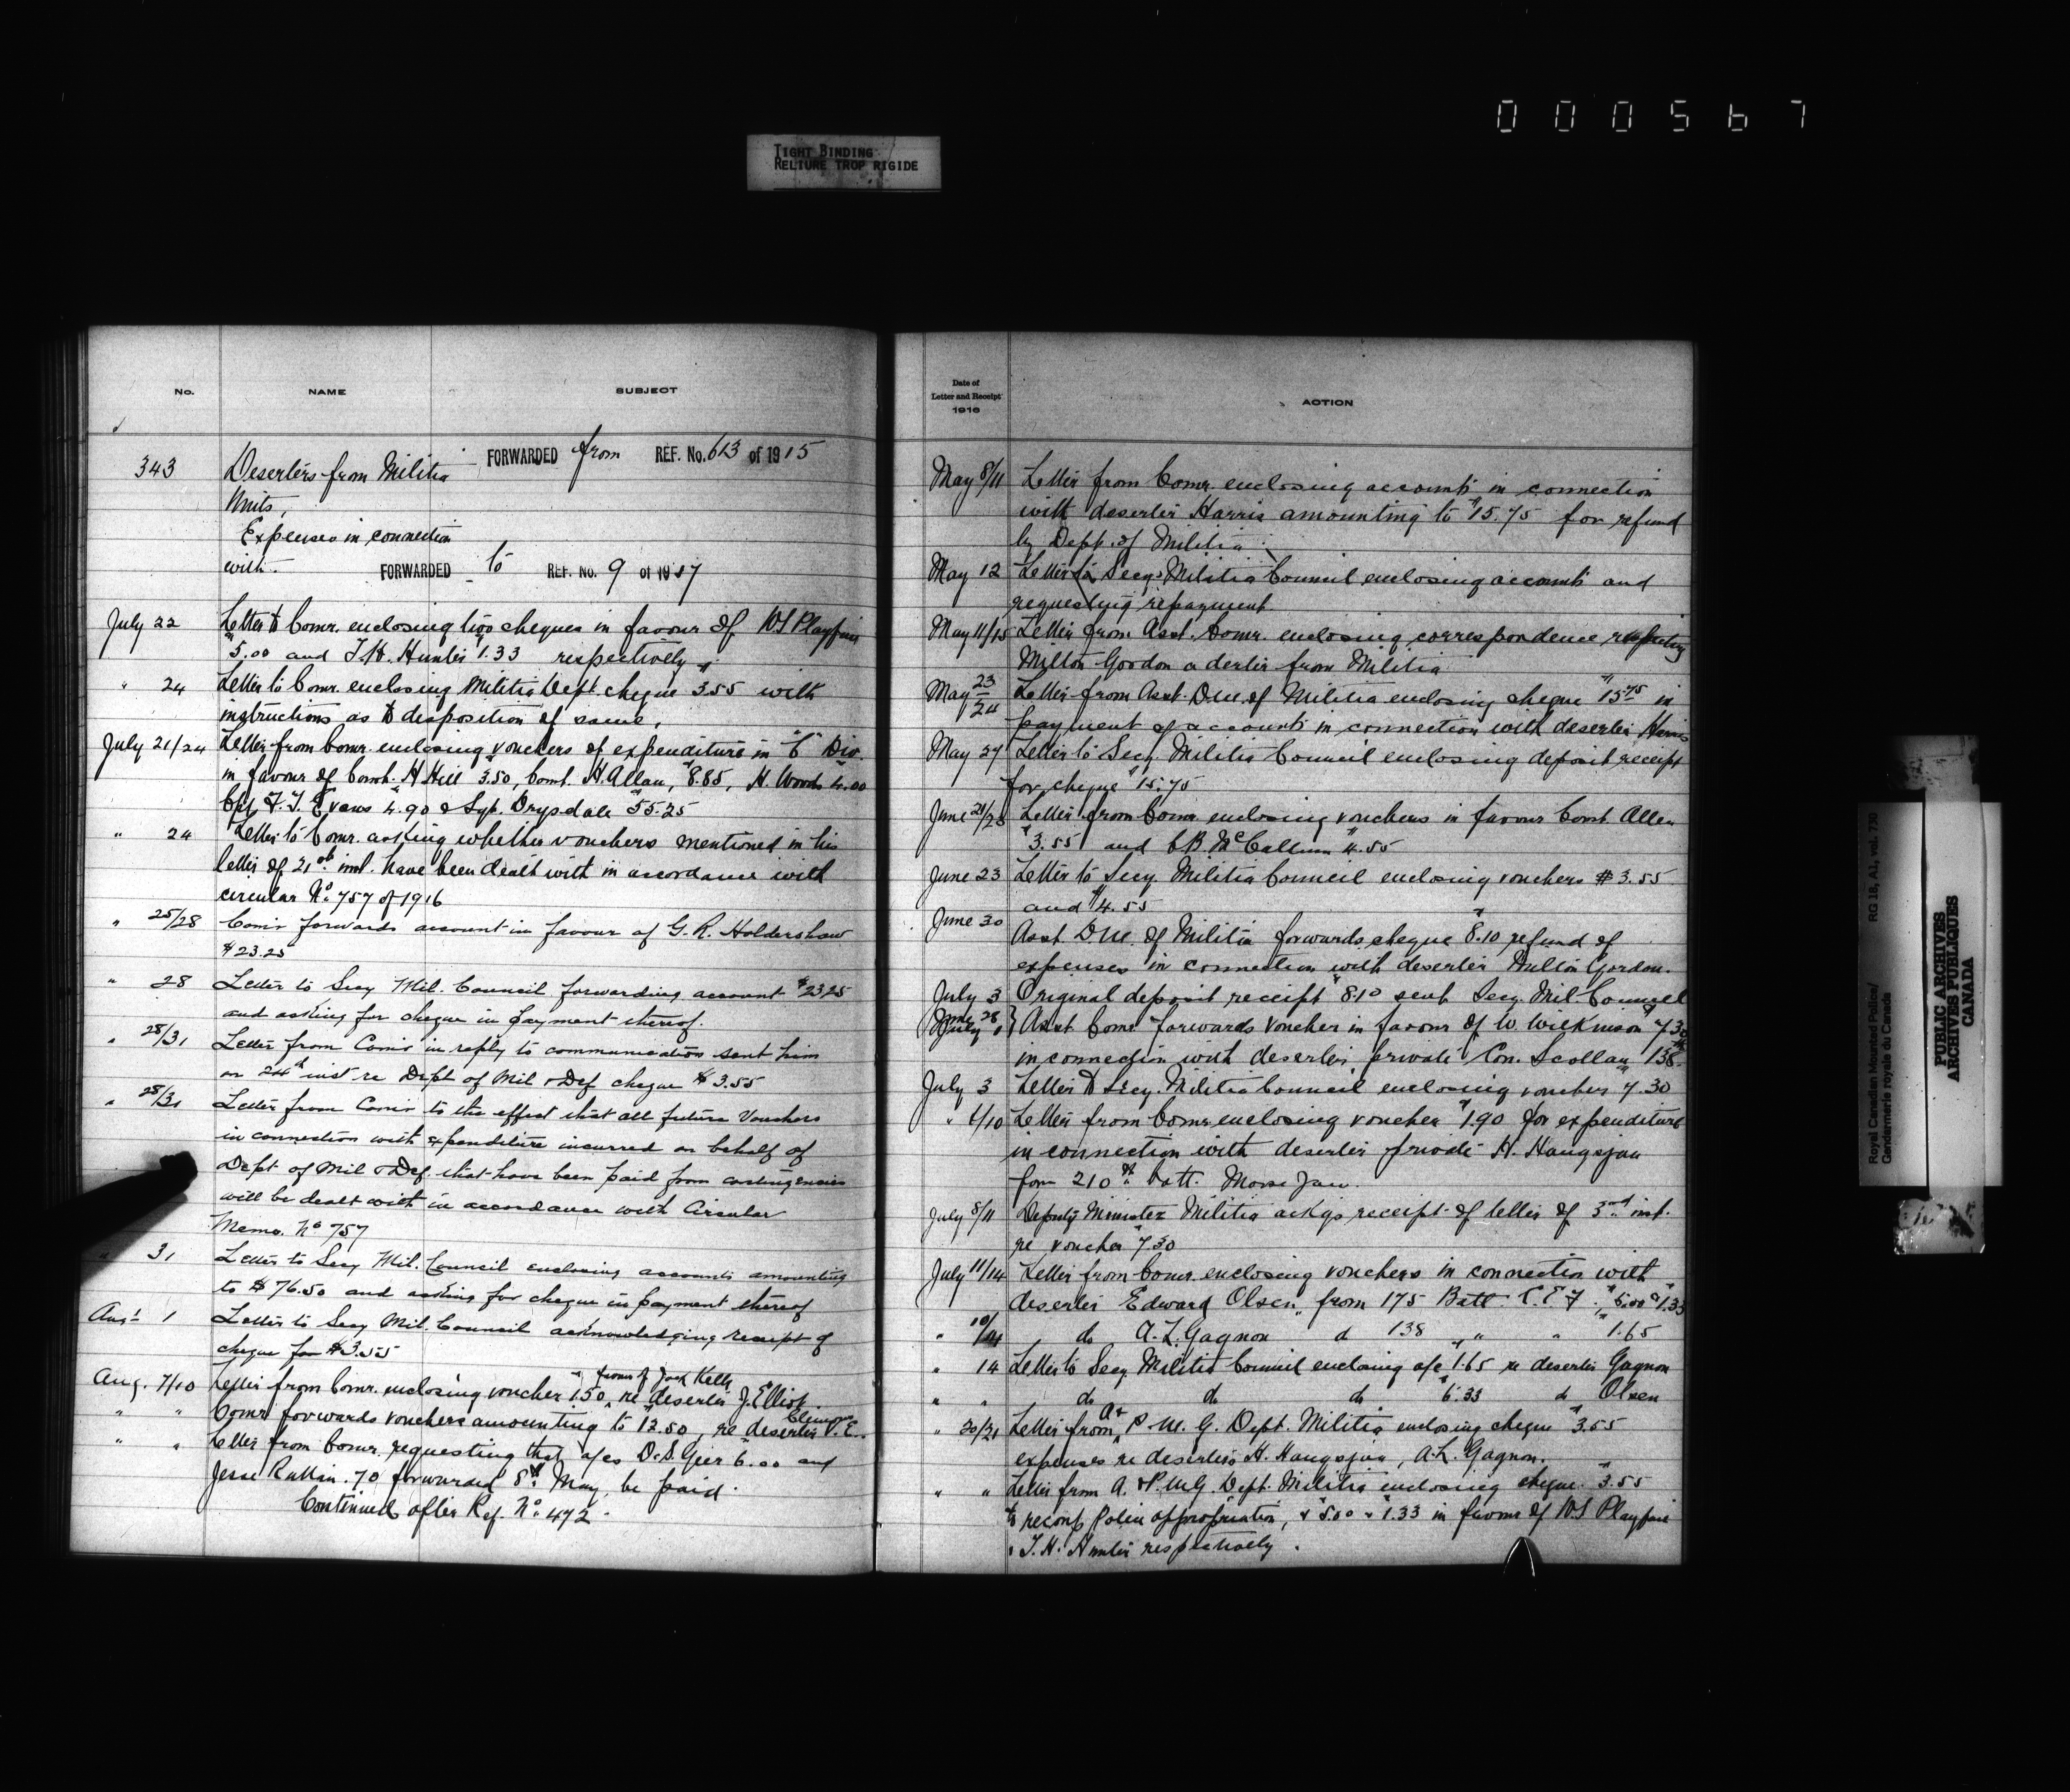 000567
TIGHT BINDING
RELIURE TROP RIGIDE
No. NAME SUBJECT
343 Deserters from Militia FORWARDED from REF. No. 613 of 1915
Units,
Expenses in connection
with. FORWARDED to REF. No. 9 of 1917
July 22 Letter to Comr. enclosing two cheques in favour of W S Playfair
$5.00 and T.H. Hunter $1.33 respectively
" 24 Letter to Comr. enclosing Militia Dept. cheque $3.55 with
instructions as to disposition of same.
July 21/24 Letter from Comr. enclosing vouchers of expenditure in "C" Div.
in favour of Const. H Hill $3.50, Const. H. Allan, $8.85, H. Woods 4.00
Cpl. F. T. Evans 4.90 & Sgt. Drysdale $55.25
" 24 Letter to Comr. asking whether vouchers mentioned in his
letter of 21st inst. have been dealt with in accordance with
circular No. 757 of 1916
" 25/28 Comr forwards account in favour of G. R. Holdershaw
$23.25
" 28 Letter to Secy Mil. Council forwarding account $23.25
and asking for cheque in payment thereof.
" 28/31 Letter from Comr in reply to communication sent him
on 24th inst re Dept of Mil & Def cheque $3.55
" 28/31 Letter from Comr to the effect that all future Vouchers
in connection with expenditure incurred on behalf of
Dept of Mil & Def. that have been paid from contingencies
will be dealt with in accordance with Circular
Memo. No 757
" 31 Letter to Secy Mil. Council enclosing accounts amounting
to $76.50 and asking for cheque in payment thereof
Aug't 1 Letter to Secy Mil. Council acknowledging receipt of
cheque for $3.55
favor of Jack Kelly
Aug. 7/10 Letter from Comr. enclosing voucher 1.50, re deserter J. Elliot.
" " Comr forwards vouchers amounting to 12.50, re deserter V. E. Clemons
" " Letter from Comr. requesting that a/cs D. S. Geer 6.00 and
Jesse Rattan .70 forwarded 8th May, be paid.
Continued after Ref. No. 472.
Date of
Letter and Receipt
1916
ACTION
May 8/11 Letter from Comr. enclosing accounts in connection
with deserter Harris amounting to $15.75 for refund
by Dept. of Militia
May 12 Letter to Secy. Militia Council enclosing accounts and
requesting repayment.
May 11/15 Letter from Asst. Comr. enclosing correspondence respecting
Milton Gordon a derter from Militia
May 23/24 Letter from Asst. D.M. of Militia enclosing cheque $15.75 in
payment of accounts in connection with deserter Harris
May 27 Letter to Secy. Militia Council enclosing deposit receipt
for cheque $15.75
June 21/23 Letter from Comr enclosing vouchers in favour Const Allen
$3.55 and C.B. McCallum 4.55
June 23 Letter to Secy. Militia Council enclosing vouchers $3.55
and $4.55
June 30 Asst D.M. of Militia forwards cheque $8.10 refund of
expenses in connection with deserter Milton Gordon.
July 3 Original deposit receipt $8.10 sent Secy. Mil Council
June 28
July 1 } Asst Comr forwards voucher in favour of W. Wilkinson $7.30
in connection with deserter private Con. Scollan 138th
July 3 Letter to Secy. Militia Council enclosing voucher $7.30
" 6/10 Letter from Comr enclosing voucher $1.90 for expenditure
in connection with deserter private H. Haugsjaa
from 210th Batt. Moose Jaw.
July 8/11 Deputy Minister Militia ackgs receipt of letter of 3rd inst.
re voucher $7.30
July 11/14 Letter from Comr. enclosing vouchers in connection with
deserter Edward Olsen, from 175 Batt. C.E.F., $5.00 & $1.33
" 10/14 do A. L. Gagnon d 138 " " $1.65
" 14 Letter to Secy. Militia Council enclosing a/c $1.65 re deserter Gagnon
" " do do do $6.33 do Olsen
" 20/21 Letter from A & P. M. G. Dept. Militia enclosing cheque $3.55
expenses re deserters H. Haugsjaa, A. L. Gagnon.
" " Letter from A. & P.M.G. Dept. Militia enclosing cheque $3.55
to recoup Police appropriation, & $5.00 & $1.33 in favour of W S Playfair
& T. H. Hunter respectively.
Royal Canadian Mounted Police/ RG 18, A1, vol. 730
Gendarmerie royale du Canada
PUBLIC ARCHIVES
ARCHIVES PUBLIQUES
CANADA